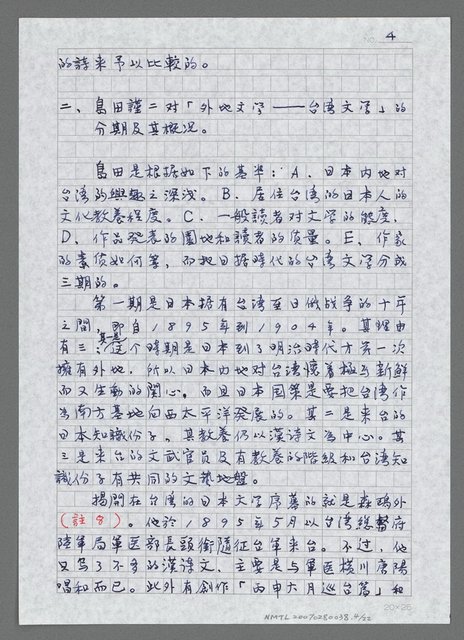 NO. 4
的詩来予以比較的。
二、島田謹二対「外地文学——台湾文学」的
分期及其概况。
島田是根据如下的基準：A、日本内地对
台湾的興趣之深浅。B、居住台湾的日本人的
文化教养程度。C、一般読者对文学的態度、
D、作品発表的園地和讀者的质量。E、作家
的素质如何等，而把日据時代的台湾文学分成
三期的。
第一期是日本据有台湾至日俄战争的十年
之間，即自1895年到1904年。其理由
有三：其一是这个時期是日本到了明治時代方第一次
擁有外地，所以日本内地对台湾懷着極为新鮮
而又生動的関心，而且日本国策是要把台湾作
为南方基地向西太平洋発展的。其二是来台的
日本知識份子，其教养仍以漢诗文为中心。其
三是来台的文武官員及有教养的階級和台湾知
識份子有共同的文藝地盤。
揭開在台湾的日本文学序幕的就是森鸥外
（註8）。他於1895年5月以台湾総督府
陸軍局軍医部長頭銜隨征台軍来台。不过，他
只写了不多的漢诗文，主要是与軍医橫川唐陽
唱和而已。此外有創作「丙申六月巡台篇」和
20×25
NMTL20070280038.4/22